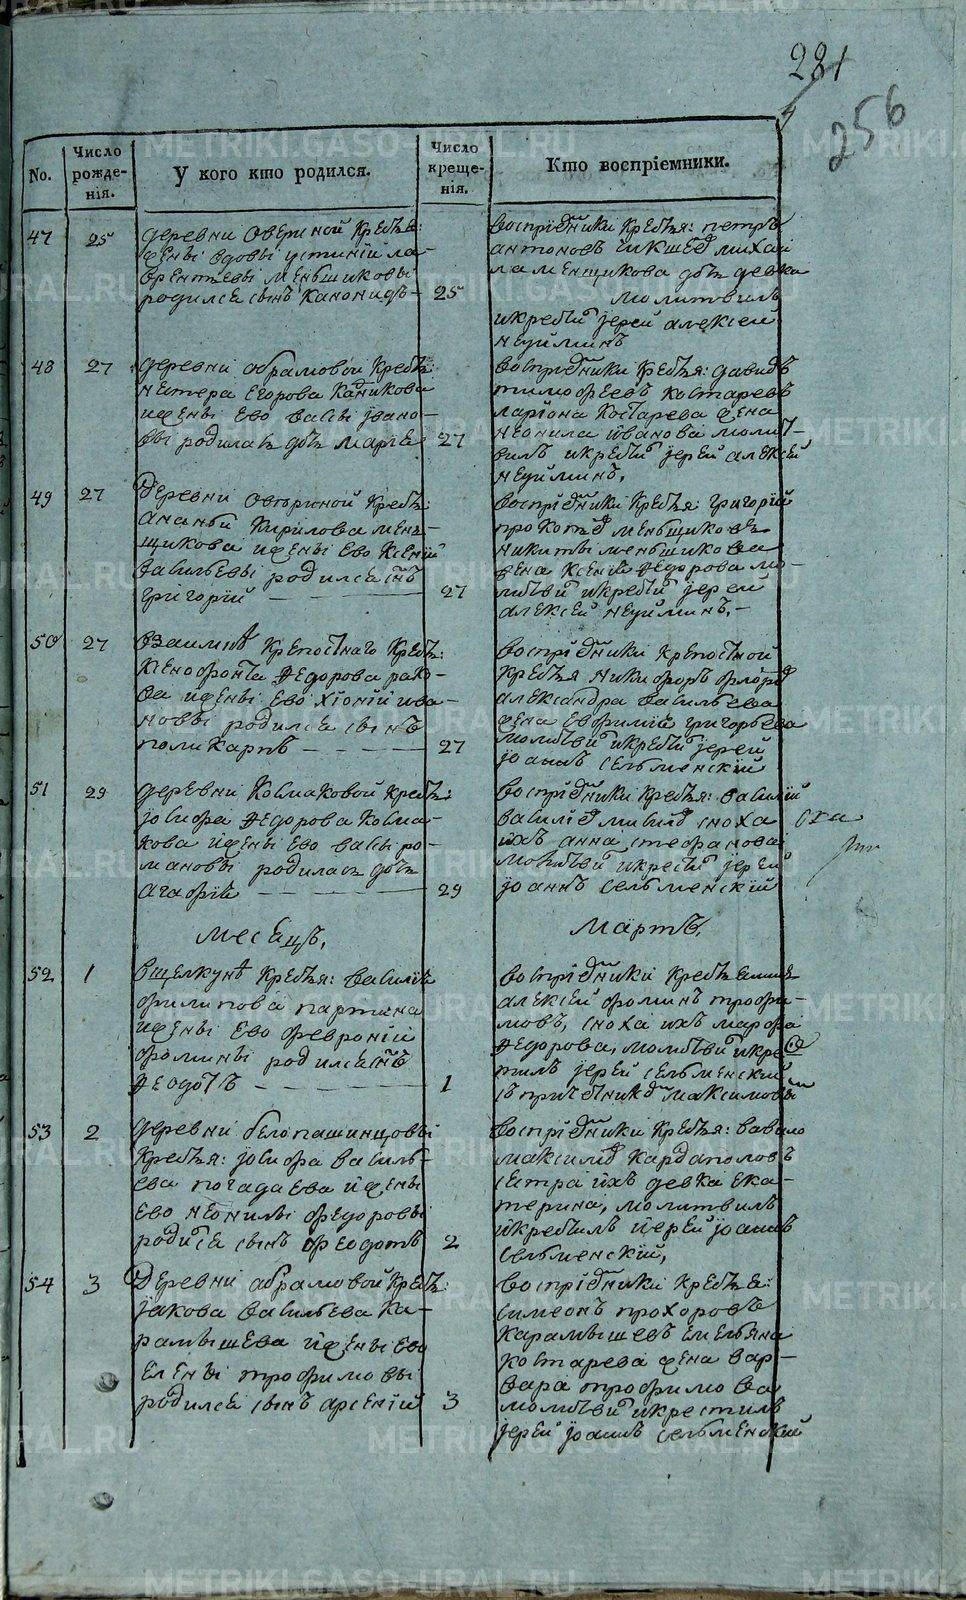 281
4
256
No.
Число рожденія.
У кого кто родился.
Число крещенія.
Кто воспріемники.
47
25
деревни Овериной Кресть:
жены вдовы устинїи ла-
врентьевы меньшиковы
родился сынъ Канонидъ - 25
Воспрїемники Крестья: петръ
антоновъ
ла менщикова дочь девка
молитвилъ
икрестил їерей алексей
неуйминъ
48
27
деревни абрамовой Кресть:
нестера егорова Каднкова
ижены ево васы ївано-
вы родилась дочь марїя 27
Воспрїемники Крестья: давидъ
тимофеевъ костаревъ
ларїона Костарева жена
неонила иванова молит-
вилъ икрестил їерей алексей
неуйминъ,
49
27
Деревни Овериной Кресть:
ананьи Кирилова мень-
щикова ижены ево Ксенїи
васильевы родился сынъ
григорїй - 27
Воспрїемники Крестья: григорїй
меньщиковъ
никиты меньшикова
жена Ксенїя Федорова мо-
литвил икрестил їерей
алексей неуйминъ, -
50
27
Взаимке Крепостнаго Кресть:
Ксенофонта Федорова рако-
ва ижены ево хїонїи ива-
новы родился сынъ
поликарпъ - 27
Воспрїемники Крепостной
крестья никифоръ
александра васильева
жена евфимїя григорьева
молитвил икрестил їерей
їоаннъ сельменскїй
51
29
деревни Колмаковой кресть:
їосифа Федорова Колма-
кова ижены ево васы ро-
мановы родилась дочь
агафїя - 29
Воспрїемники Крестья: василїй
сноха
ихъ анна стефанова
молитвил икрестил їерей
їоаннъ сельменскїй
месяцъ,
мартъ,
52
1
Вщелкуне Крестья: василїя
филипова партина
ижены ево февронїи
фомины родился сынъ
Федотъ - 1
Воспрїемники
алексей фоминъ трофи-
мовъ, сноха ихъ марфа
Федорова, молитвил икре
тилъ їерей сельменскїй
максимовы
53
2
деревни белопашинцовы
Крестья: їосифа василь-
ева погадаева ижены
ево неонилы федоровы
родился сынъ феодотъ 2
Воспрїемники Крестья: вавило
Кардаполовъ
сестра ихъ девка ека-
терина, молитвилъ
икрестилъ їерей їоаннъ
сельменскїй,
54
3
Деревни абрамовой Кресть:
їакова васильева ка-
рамышева ижены ево
елены трофимовы
родился сынъ арсенїй 3
Воспрїемники Крестья:
симеонъ прохоровъ
карамышевъ емельяна
костарева жена вар-
вара трофимова
молитвил икрестилъ
їерей їоаннъ сельменскїй
METRIKI.GASO-URAL.RU